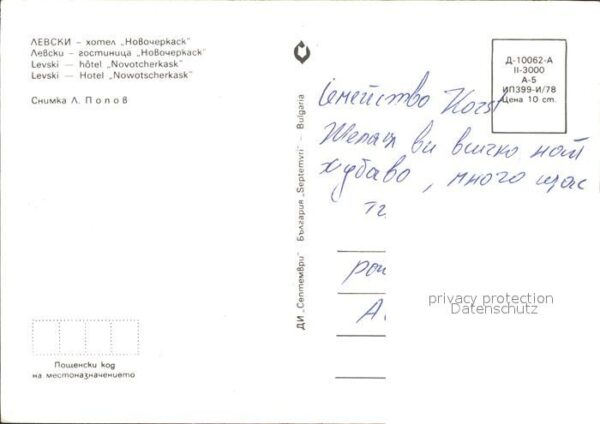 ЛЕВСКИ – хотел „Новочеркаск"
Левски – гостиница „Новочеркаск"
Levski – hôtel „Novotcherkask"
Levski – Hotel „Nowotscherkask"
Снимка Л. Попов
ДИ „Септември" България „Septemvri" – Bulgaria
Д-10062-А
II-3000
А-5
ИП399-И/78
Цена 10 ст.
Семейство
ви всичко най
хубаво, много щас
privacy protection
Datenschutz
Пощенски код
на местоназначението